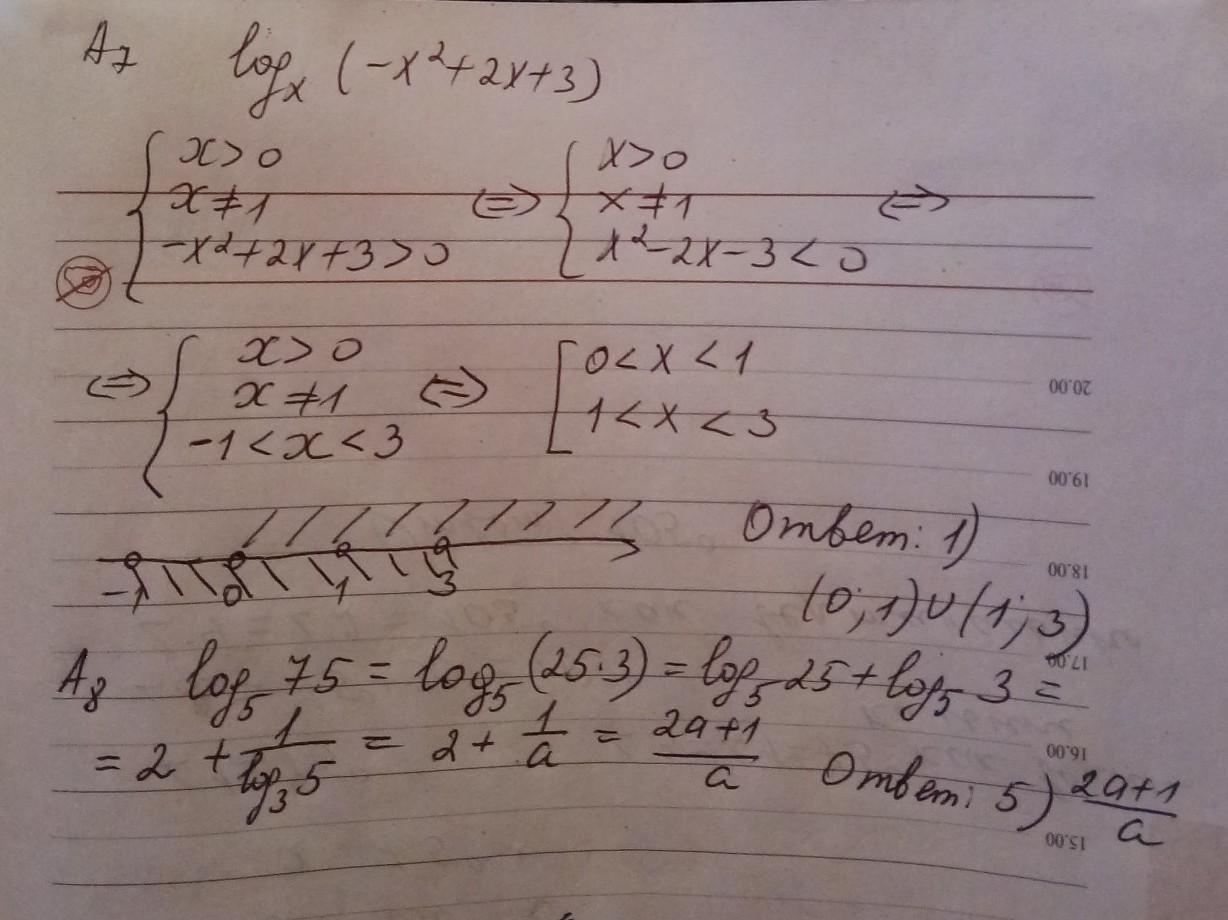 A₇ logₓ (-x²+2x+3)
{ x>0
x≠1
-x²+2x+3>0 ⇔ { x>0
x≠1
x²-2x-3<0 ⇔
⇔ { x>0
x≠1
-1<x<3 ⇔ [ 0<x<1
1<x<3
20.00
19.00
-1 0 1 3
Ответ: 1)
18.00
(0; 1)∪(1; 3)
17.00
A₈ log₅ 75 = log₅ (25·3) = log₅ 25 + log₅ 3 =
= 2 + 1/log₃ 5 = 2 + 1/a = (2a+1)/a
16.00
Ответ: 5) (2a+1)/a
15.00